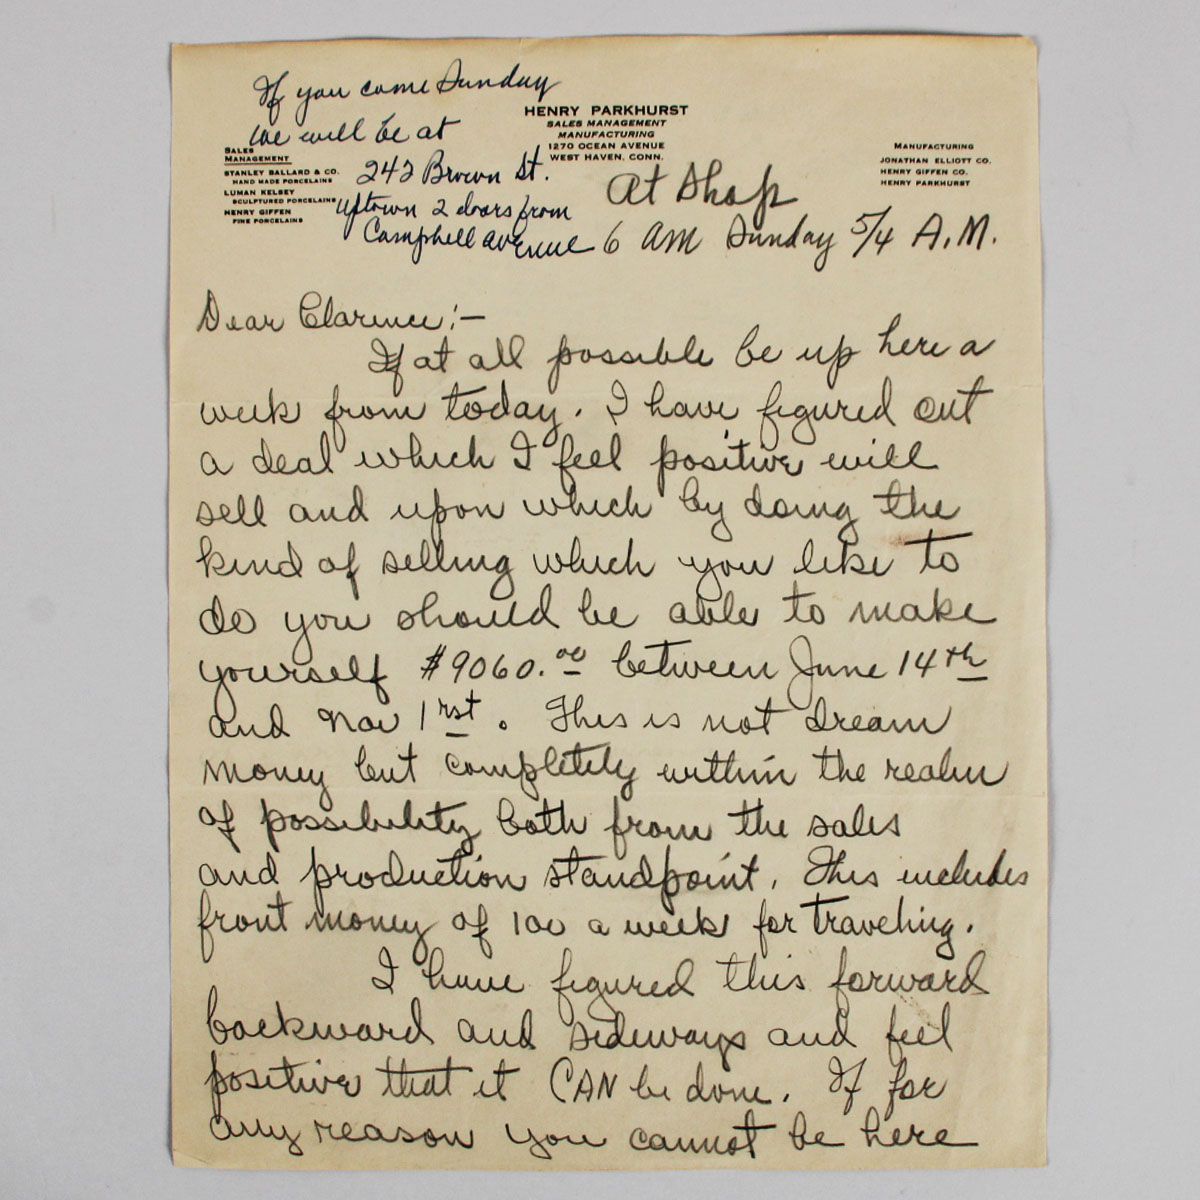 If you come Sunday
we will be at
242 Brown St.
uptown 2 doors from
Campbell avenue
HENRY PARKHURST
SALES MANAGEMENT
MANUFACTURING
1270 OCEAN AVENUE
WEST HAVEN, CONN.
SALES
MANAGEMENT
STANLEY BALLARD & CO.
HAND MADE PORCELAINS
LUMAN KELSEY
SCULPTURED PORCELAINS
HENRY GIFFEN
FINE PORCELAINS
MANUFACTURING
JONATHAN ELLIOTT CO.
HENRY GIFFEN CO.
HENRY PARKHURST
At Shop
6 AM Sunday 5/4 A.M.
Dear Clarence:-
If at all possible be up here a
week from today. I have figured out
a deal which I feel positive will
sell and upon which by doing the
kind of selling which you like to
do you should be able to make
yourself $9060.00 between June 14th
and Nov 1rst. This is not dream
money but completely within the realm
of possibility both from the sales
and production standpoint. This includes
front money of 100 a week for traveling.
I have figured this forward
backward and sideways and feel
positive that it CAN be done. If for
any reason you cannot be here